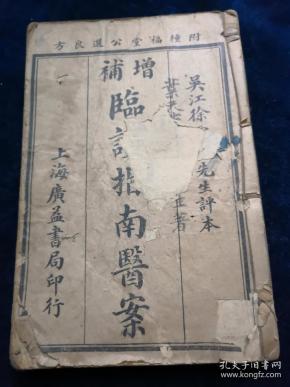 附種福堂公選良方
吳江徐先生評本
葉天著
增補
臨指南醫案
上海廣益書局印行
孔夫子旧书网